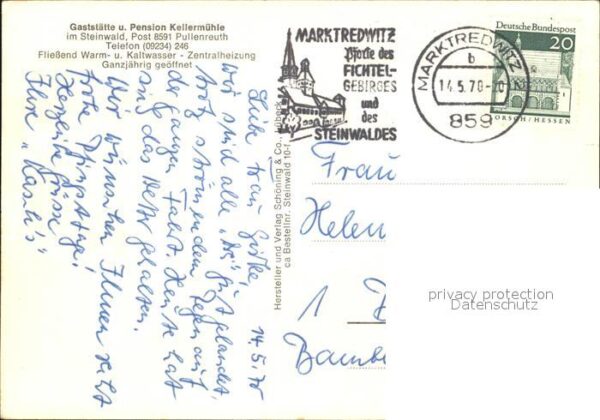 Gaststätte u. Pension Kellermühle
im Steinwald, Post 8591 Pullenreuth
Telefon (09234) 246
Fließend Warm- u. Kaltwasser - Zentralheizung
Ganzjährig geöffnet
MARKTREDWITZ
Pforte des
FICHTEL-
GEBIRGES
und
des
STEINWALDES
MARKTREDWITZ
b
14.5.70-20
859
Deutsche Bundespost
20
LORSCH/HESSEN
14.5.70
Liebe Frau
wir sind alle gut gelandet,
trotz strömenden Regen auf
der ganzen Fahrt. Heute hat
sich das Wetter gehalten.
Wir wünschen Ihnen recht
frohe Pfingsttage!
Herzliche Grüsse
Ihre
Hersteller und Verlag Schöning & Co., Lübeck
ca Bestellnr. Steinwald 10-f
Frau
Helen
1
Bambe
privacy protection
Datenschutz